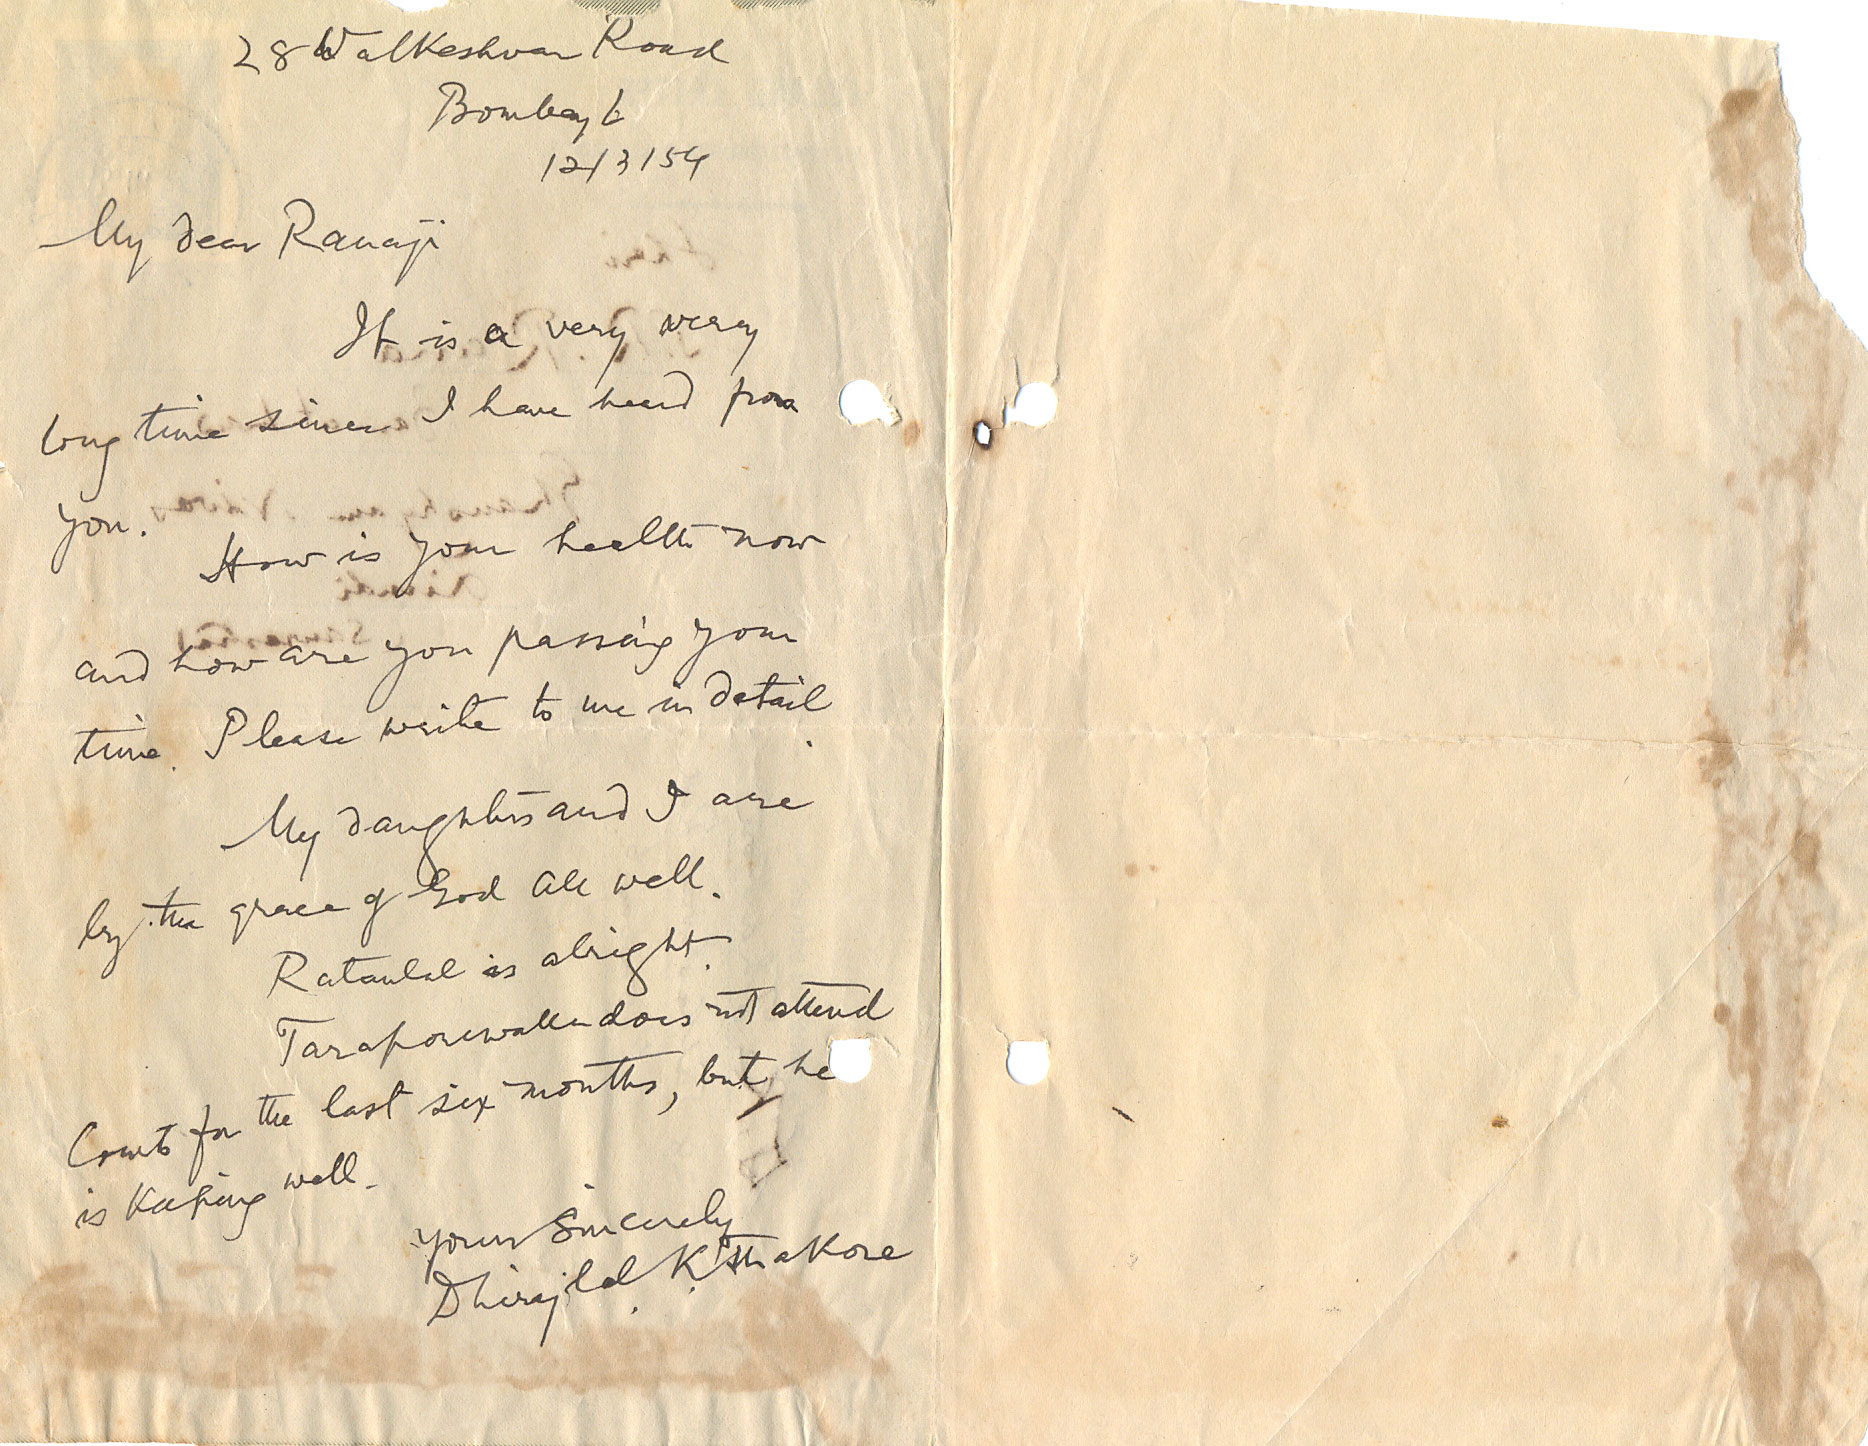 28 Walkeshwar Road
Bombay 6
12/3/54
My dear Ranaji
It is a very very
long time since I have heard from
you.
How is your health now
and how are you passing your
time. Please write to me in detail.
My daughters and I are
by the grace of God all well.
Ratanlal is alright.
Taraporewalla does not attend
Courts for the last six months, but he
is keeping well.
Yours Sincerely
Dhirajlal. K. Thakore